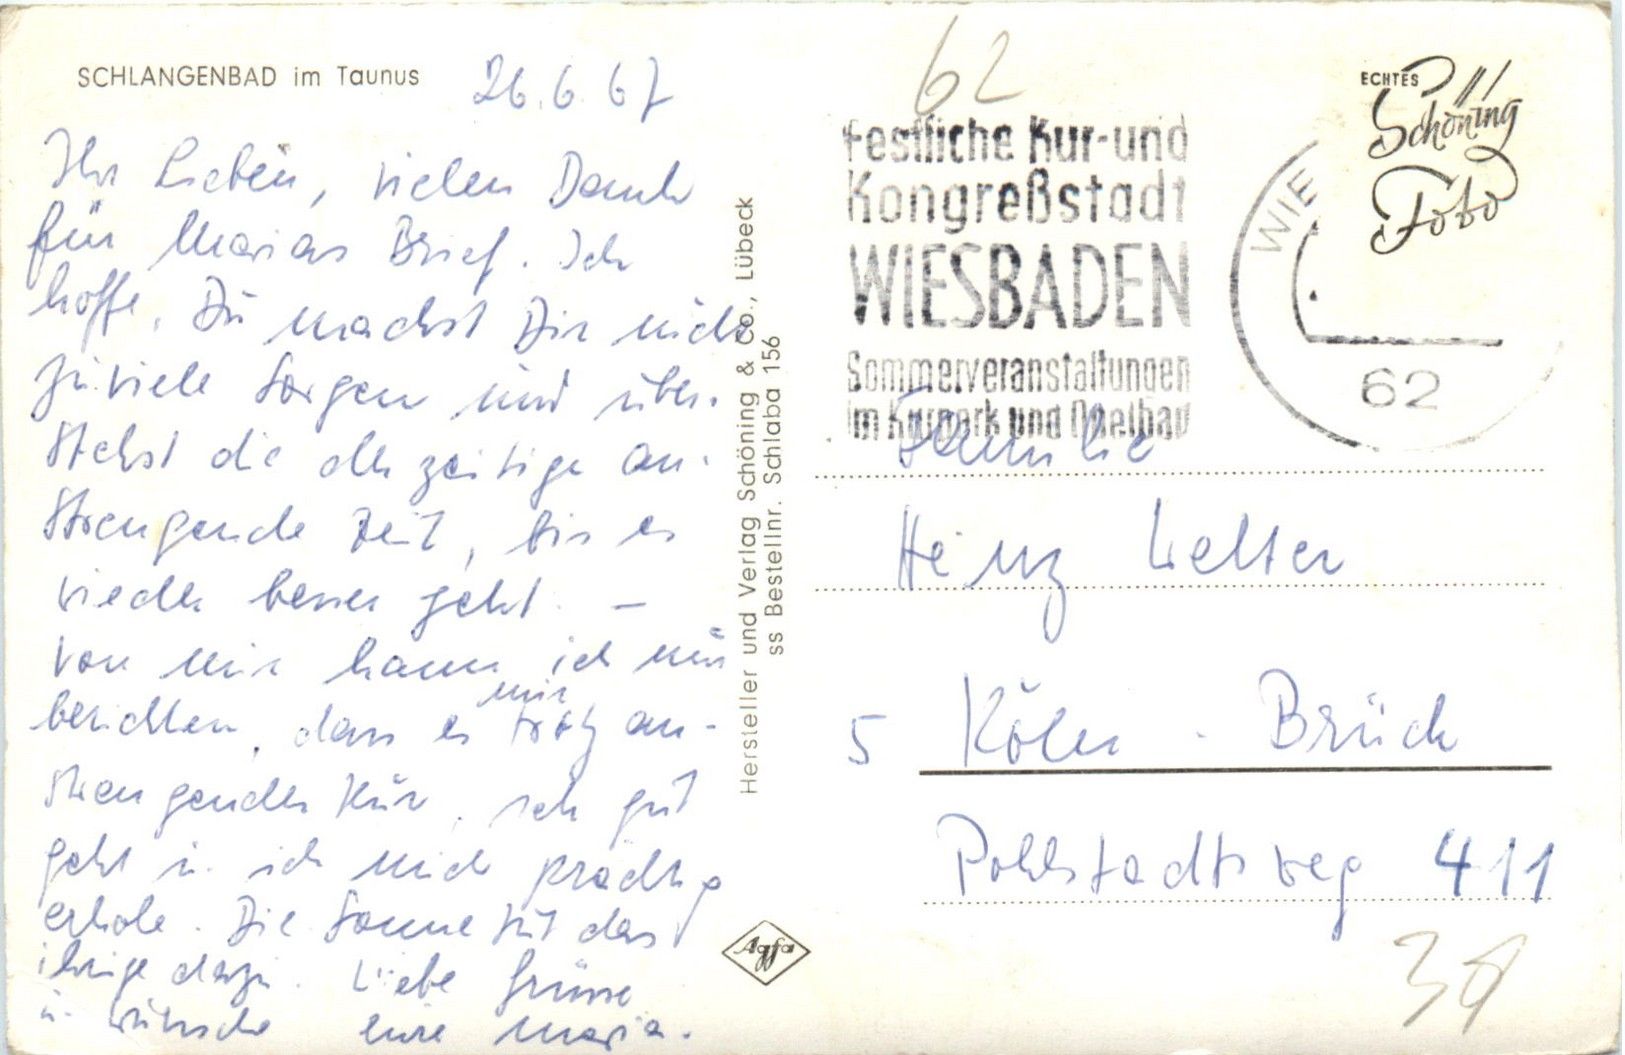 SCHLANGENBAD im Taunus
26.6.67
Ihr Lieben, vielen Dank
für Marias Brief. Ich
hoffe, Du machst Dir nicht
zuviele Sorgen und über-
stehst die derzeitige an-
strengende Zeit, bis es
wieder besser geht. –
Von mir kann ich nur
berichten, dass es mir trotz an-
strengender Kur, sehr gut
geht u. ich mich prächtig
erhole. Die Sonne tut das
ihrige dazu. Liebe Grüsse
u. Wünsche Eure Maria.
Hersteller und Verlag Schöning & Co., Lübeck
ss Bestellnr. Schlaba 156
Agfa
62
Festliche Kur-und
Kongreßstadt
WIESBADEN
Sommerveranstaltungen
im Kurpark und Opelbad
WIE
62
ECHTES
Schöning
Foto
Familie
Heinz Welter
5 Köln - Brück
Pohlstadtsweg 411